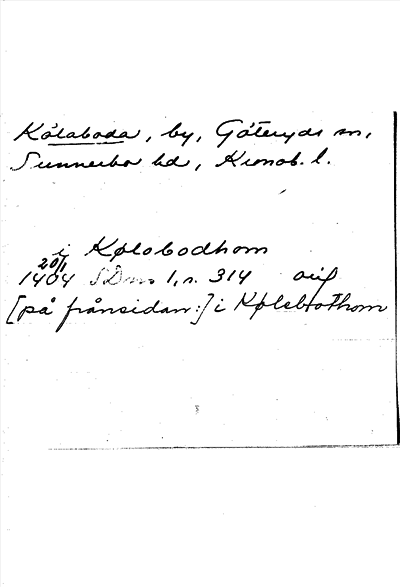 Kålaboda, by, Göteryds sn,
Sunnerbo hd, Kronob. l.
i Kølobodhom
20/1
1404 SDns 1, s. 314 orig
[på frånsidan:] i Kølebothom